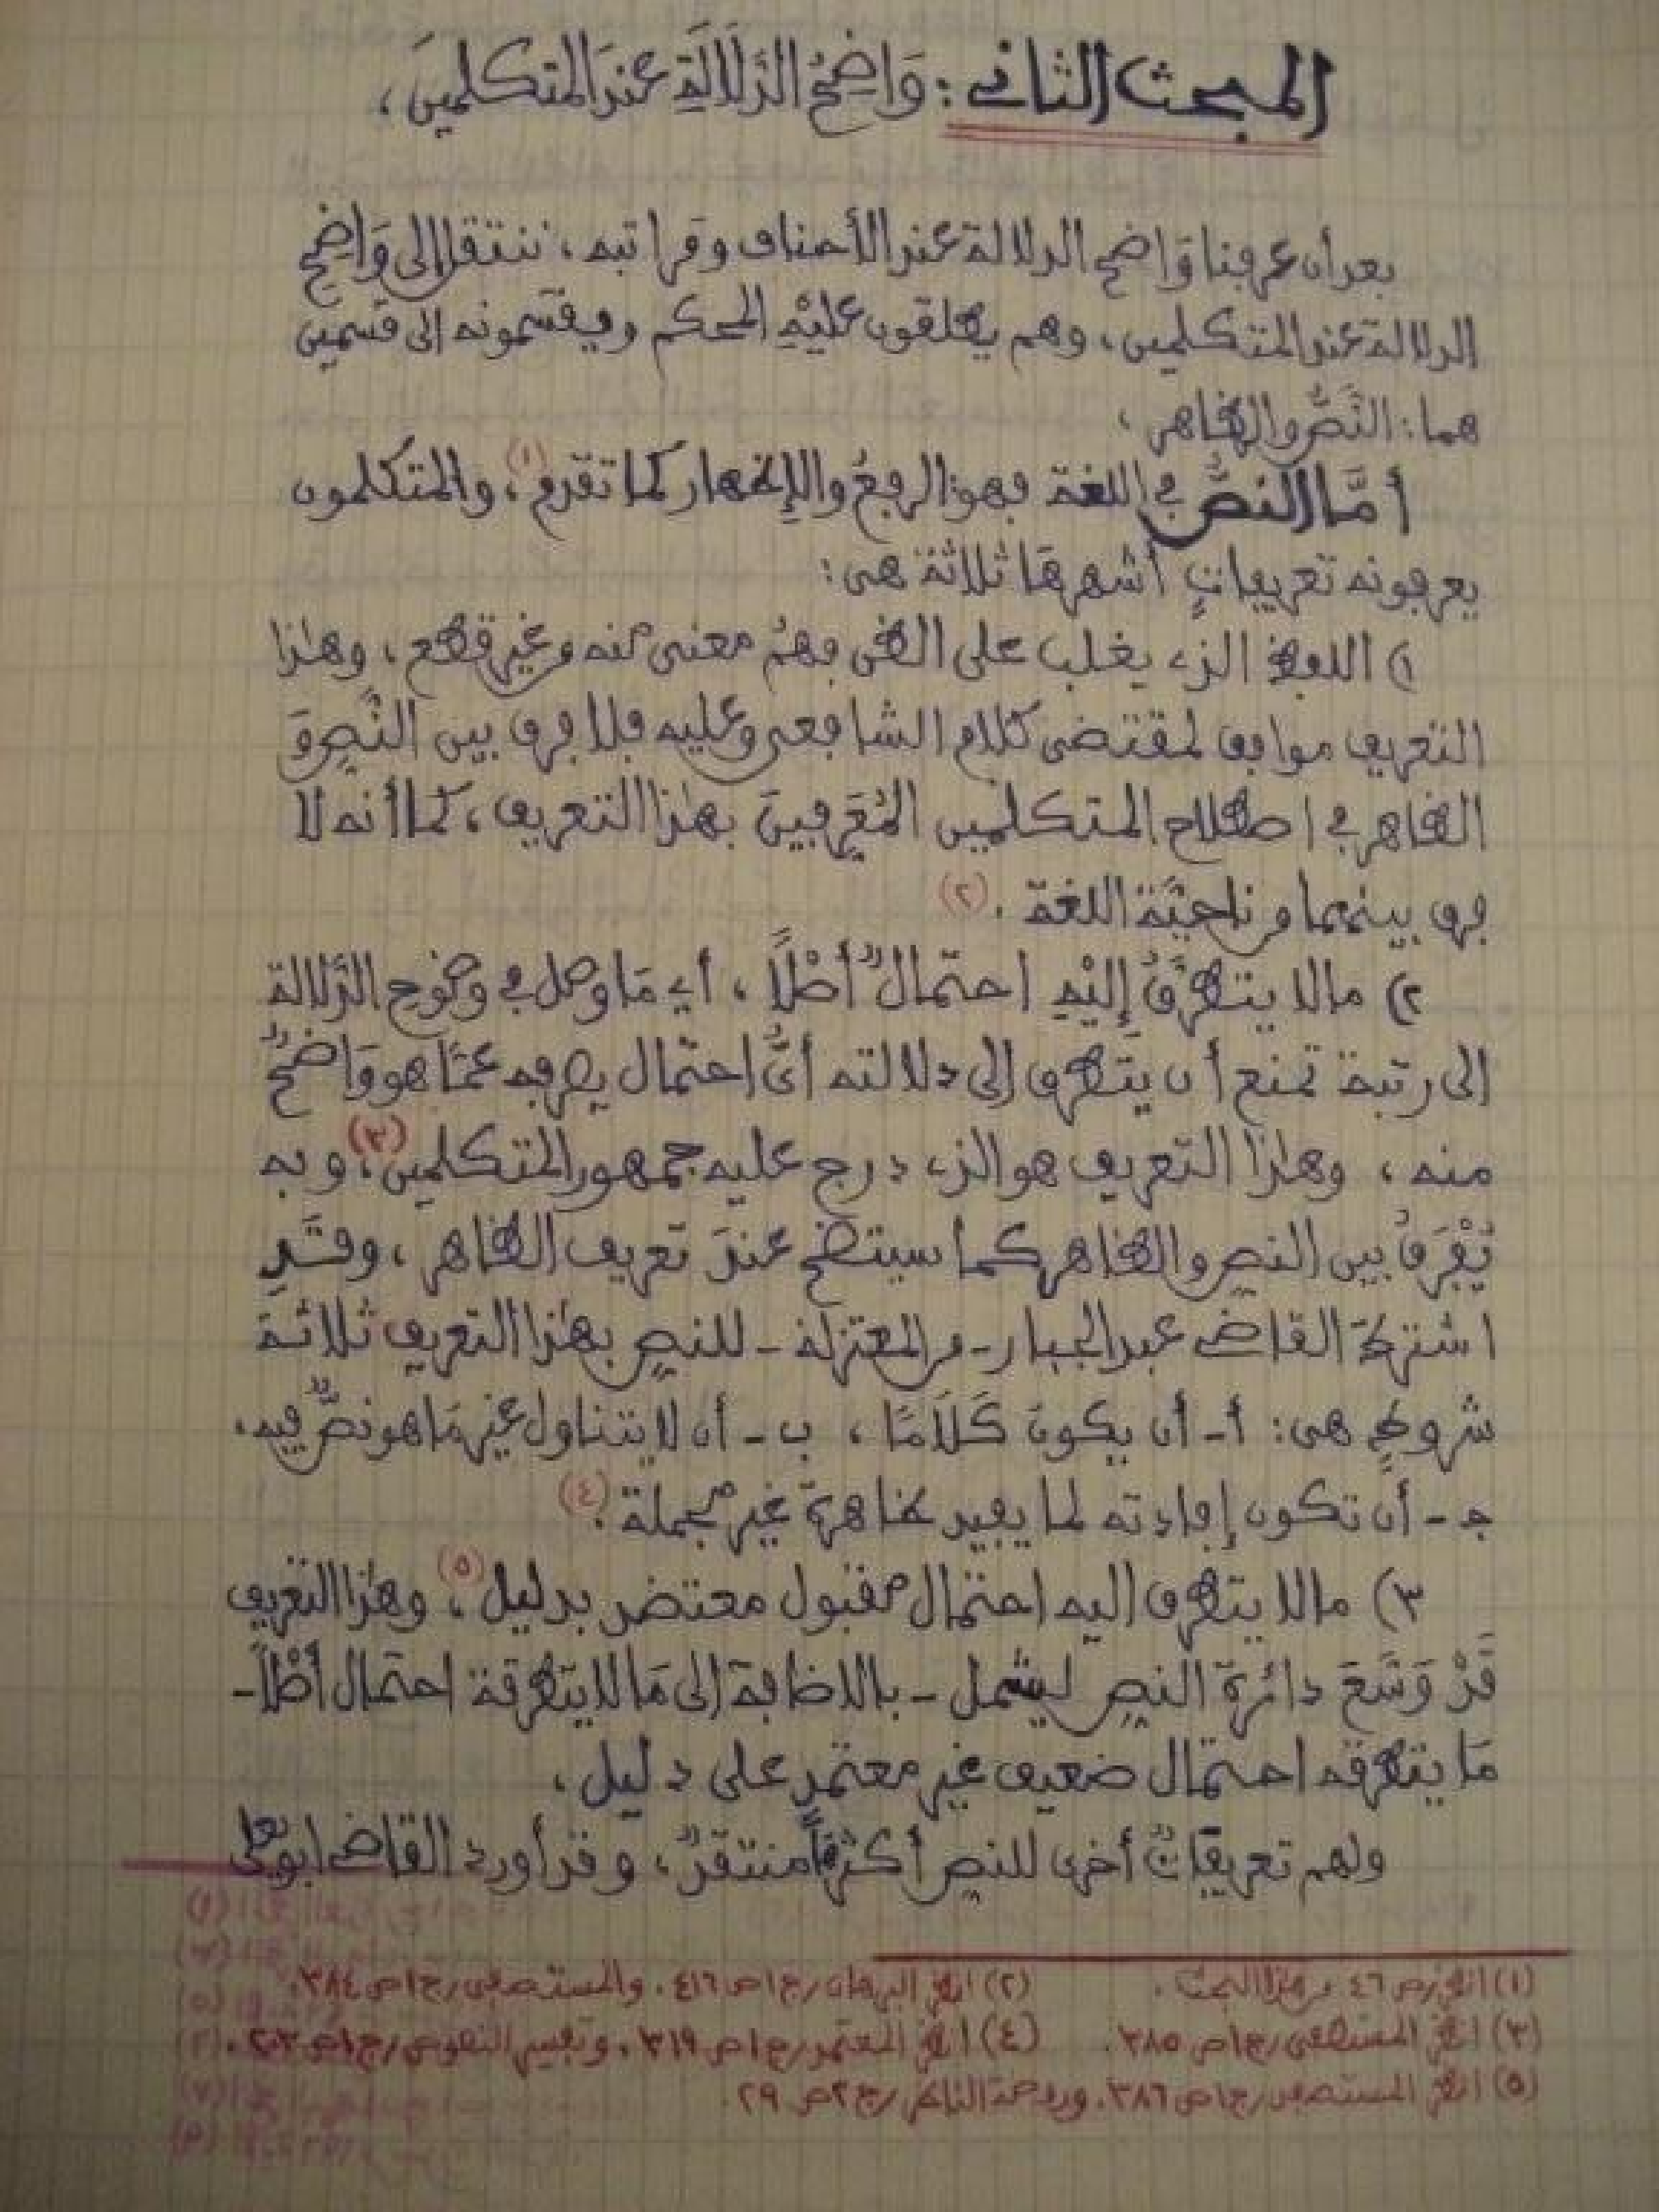 المبحث الثاني: وَاضِحُ الدَّلَالَةِ عندَ المتكلمينَ،
بعد أن عرفنا وَاضح الدلالة عند الأحناف ومَراتبه، ننتقل إلى وَاضِحِ
الدلالة عند المتكلمين، وهم يطلقون عليْهِ المحكم ويقسّمونه إلى قسمين
هما: النَّصُّ والظاهر،
أمَّا النصُّ في اللغة فهو: الرفعُ والإظهار كما تقدم (١)، والمتكلمون
يعرفونه تعريفاتٍ أشهرهَا ثلاثة هي:
١) اللفظ الذي يغلب على الظن فهمُ معنى منه من غير قطع، وهذا
التعريف موافق لمقتضى كلام الشافعي وعليه فلا فرق بين النَّصِ وَ
الظاهر في اصطلاح المتكلمين المُعَرِفينَ بهذا التعريف، كما أنه لا
فرق بينهما من ناحيَّة اللغة. (٢)
٢) مالا يتطرَّقُ إليْهِ احتمالٌ أصْلاً، أي مَا وصل في وضوح الدَّلالة
إلى رتبة تمنع أن يتَطرق إلى دلالته أيُّ احتمال يصرفه عمَّا هو وَاضحٌ
منه، وهذا التعريف هو الذي درج عليه جمهور المتكلمين (٣)، وبه
يُفْرَقُ بين النصِ والظاهر كما سيتضح عندَ تعريف الظاهر، وقَدِ
اشترطَ القاضي عبد الجبار - من المعتزلة - للنصِ بهذا التعريف ثلاثة
شروطٍ هي: أ- أن يكونَ كَلَامًا، ب- أن لا يتناول غير مَا هو نصٌّ فيه،
جـ- أن تكون إفادته لما يفيد ظاهرة غير مجملة. (٤)
٣) مالا يتطرق إليه احتمال مقبول معتضد بدليل (٥)، وهذا التعريف
قَدْ وَسَّعَ دائرة النصِ ليشمل - بالاضافة إلى مَا لا يتطرقه احتمال أصْلاً -
مَا يتطرقه احتمال ضعيف غير معتمدٍ على دليل،
ولهم تعريفاتٌ أخرى للنصِ أكثرهَا منتقدٌ، وقد أورد القاضي ابو يعلى
(١) انظر ص ٤٦ من هذا البحث. (٢) انظر البرهان/ج١ص٤١٦، والمستصفى/ج١ص٣٨٤.
(٣) انظر المستصفى/ج١ص٣٨٥. (٤) انظر المعتمد/ج١ص٣١٩، وتفسير النصوص/ج١ص٢٠٣.
(٥) انظر المستصفى/ج١ص٣٨٦، وروضة الناظر/ج٢ص٢٩.